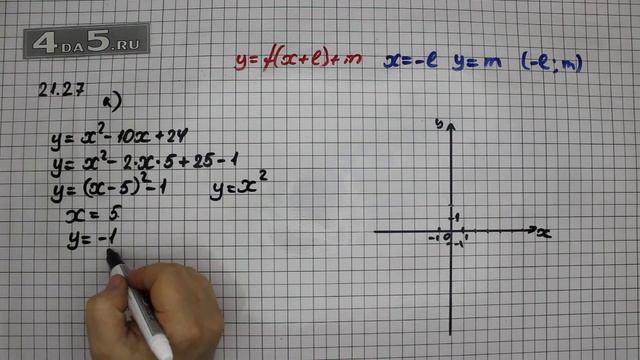 4DA5.RU
y=f(x+l)+m x=-l y=m (-l;m)
21.27
а)
y=x²-10x+24
y=x²-2·x·5+25-1
y=(x-5)²-1 y=x²
x=5
y=-1
y
1
-1 0 1 x
-1